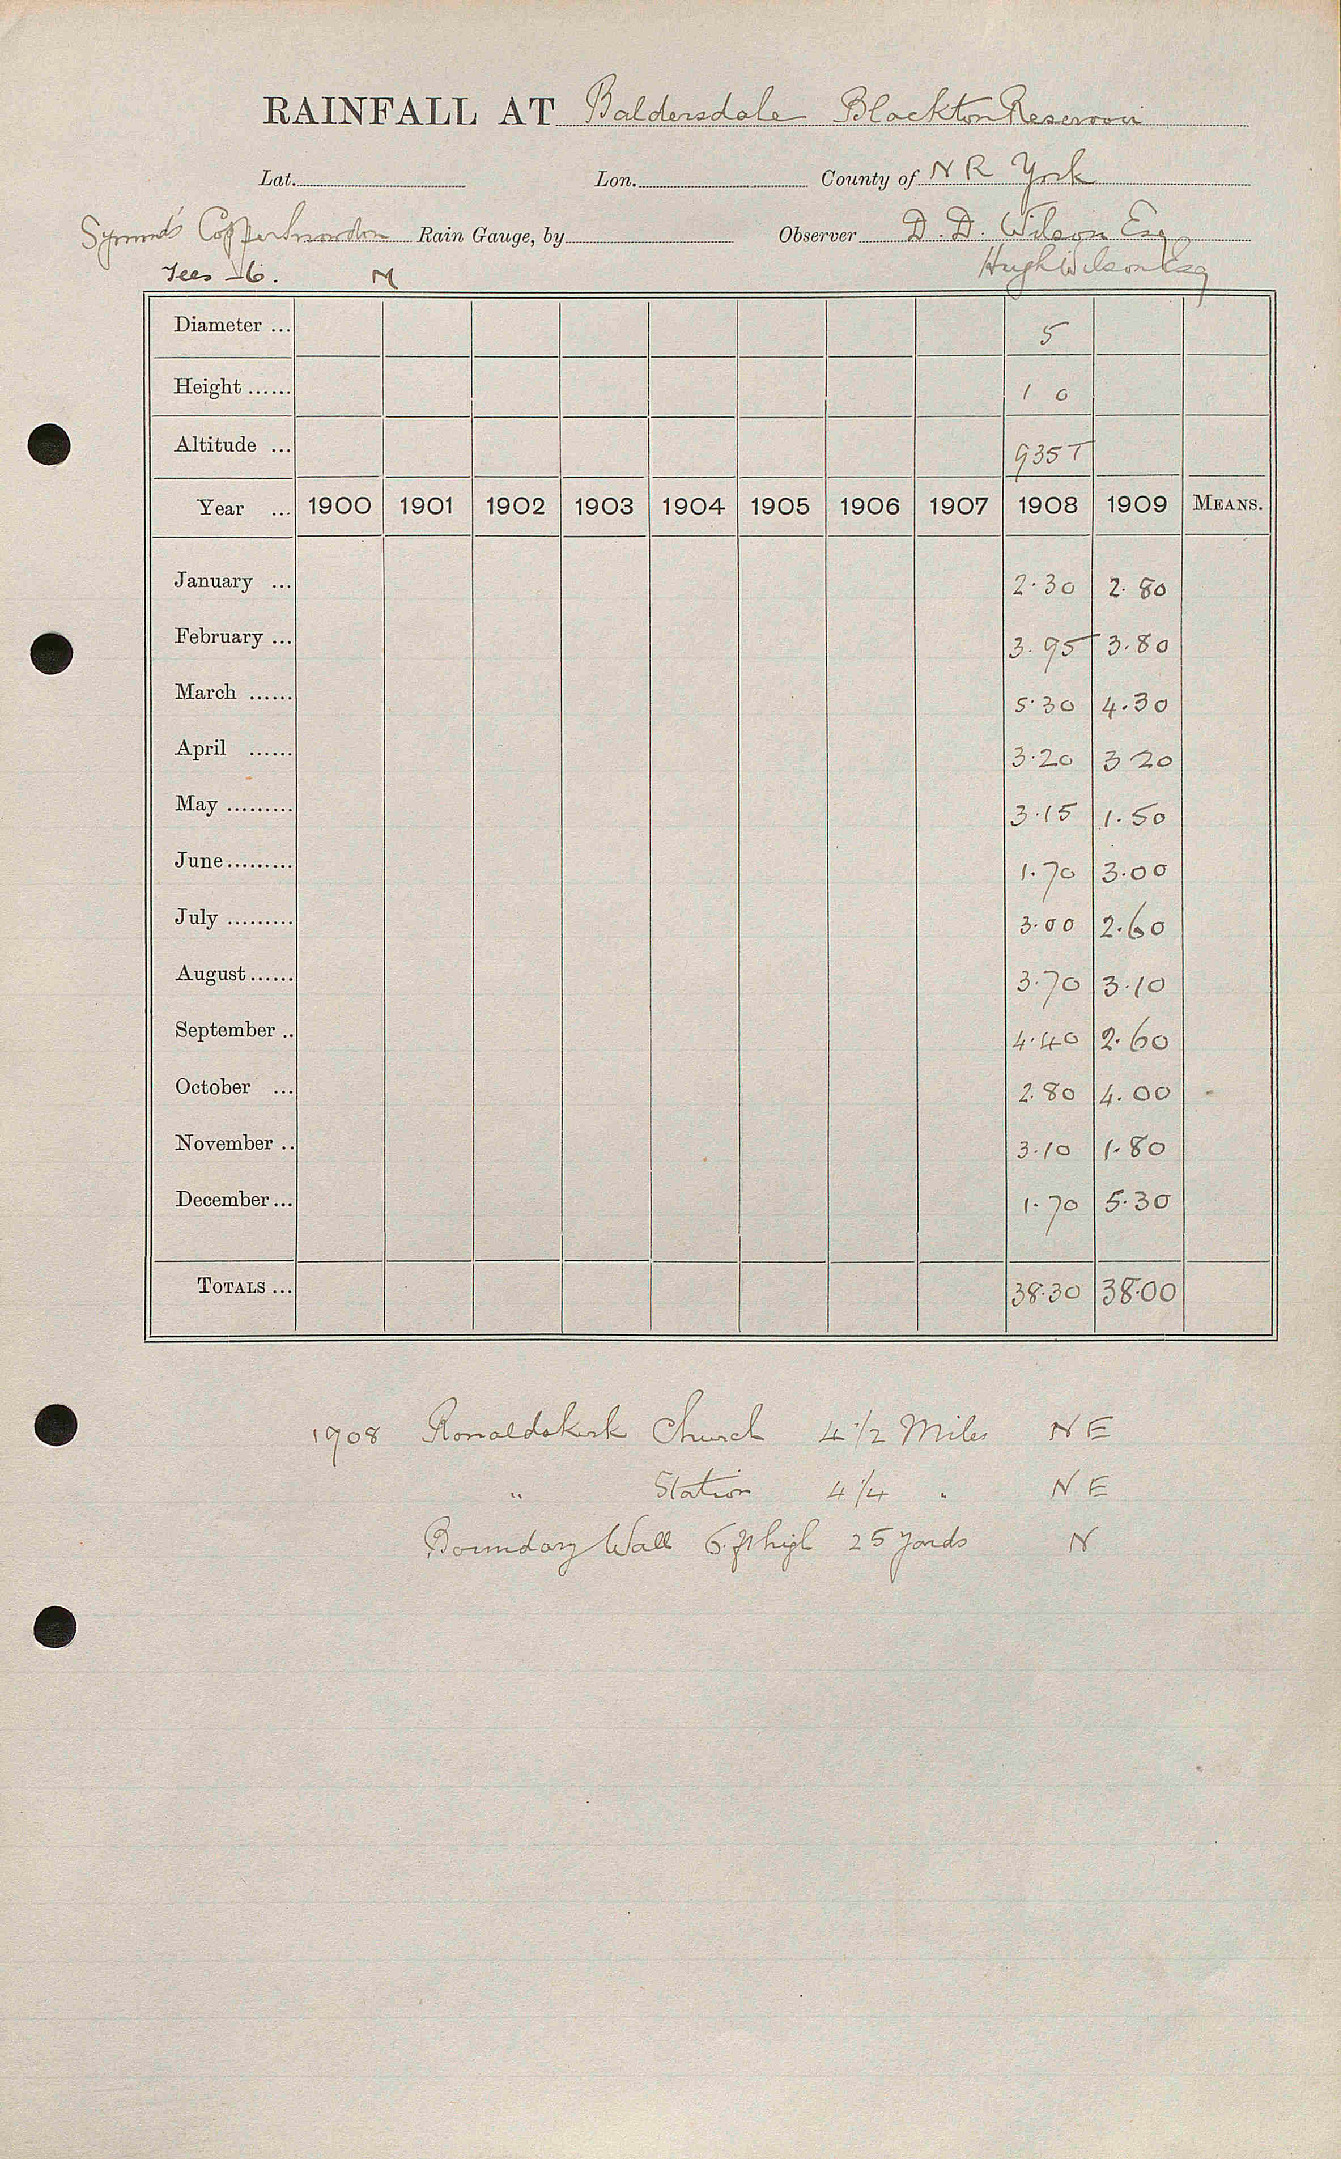 RAINFALL AT Baldersdale Blackton Reservoir
Lat. Lon. County of N R York
Symons's Copper Snowdon Rain Gauge, by Observer D. D. Wilson Esq
Tees - 6. M Hugh Wilson Esq
Diameter ... 5
Height ...... 1 0
Altitude ... 935 T
Year ... 1900 1901 1902 1903 1904 1905 1906 1907 1908 1909 MEANS.
January ... 2.30 2.80
February ... 3.95 3.80
March ...... 5.30 4.30
April ...... 3.20 3 20
May ......... 3.15 1.50
June......... 1.70 3.00
July ......... 3.00 2.60
August...... 3.70 3.10
September .. 4.40 2.60
October ... 2.80 4.00
November .. 3.10 1.80
December... 1.70 5.30
TOTALS ... 38.30 38.00
1908 Romaldskirk Church 4 1/2 Miles N E
" Station 4 1/4 " N E
Boundary Wall 6 ft high 25 yards N